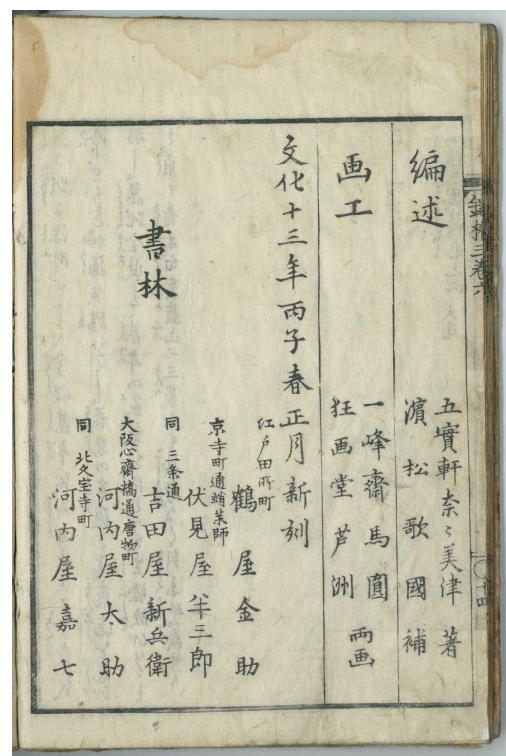 編述
五實軒奈〻美津 著
濱松歌國 補
画工
一峰齋馬圓
狂画堂芦洲 両画
文化十三年丙子春正月新刻
書林
江戸田所町
鶴屋金助
京寺町通蛸薬師
伏見屋半三郎
同 三条通
吉田屋新兵衛
大阪心齋橋通唐物町
河内屋太助
同 北久宝寺町
河内屋嘉七
三卷六
十四